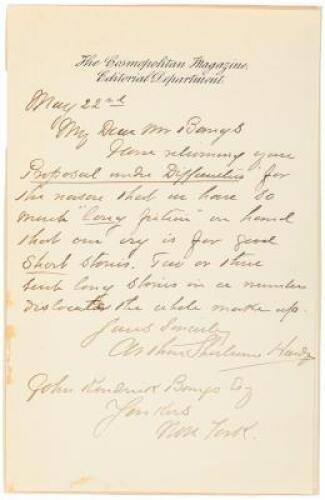 The Cosmopolitan Magazine.
Editorial Department.
May 22nd
My Dear Mr Bangs
I am returning your
"Proposal under Difficulties" for
the reason that we have so
much "Long fiction" on hand
that our cry is for good
Short stories. Two or three
such long stories in a number
dislocates the whole make up.
Yours Sincerely
Arthur Sherburne Hardy
John Kendrick Bangs Esq
Yonkers
New York.